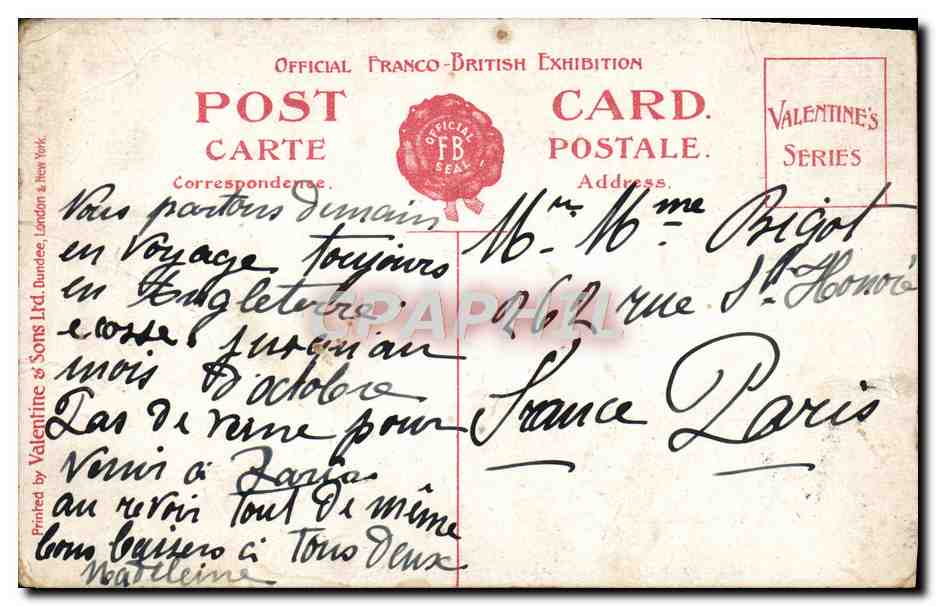 OFFICIAL FRANCO-BRITISH EXHIBITION
POST CARD.
CARTE POSTALE.
Correspondence. Address.
OFFICIAL
FB
SEAL
VALENTINE'S
SERIES
Printed by Valentine & Sons Ltd. Dundee, London & New York
Nous partons demain
en voyage toujours
en Angleterre.
ecosse jusqu'au
mois d'octobre
Pas de veine pour
venir à Paris
au revoir tout de même
bons baisers à tous deux
Madeleine
Mr. Mme Bigot
262 rue St. Honoré
France Paris
CPAPHIL